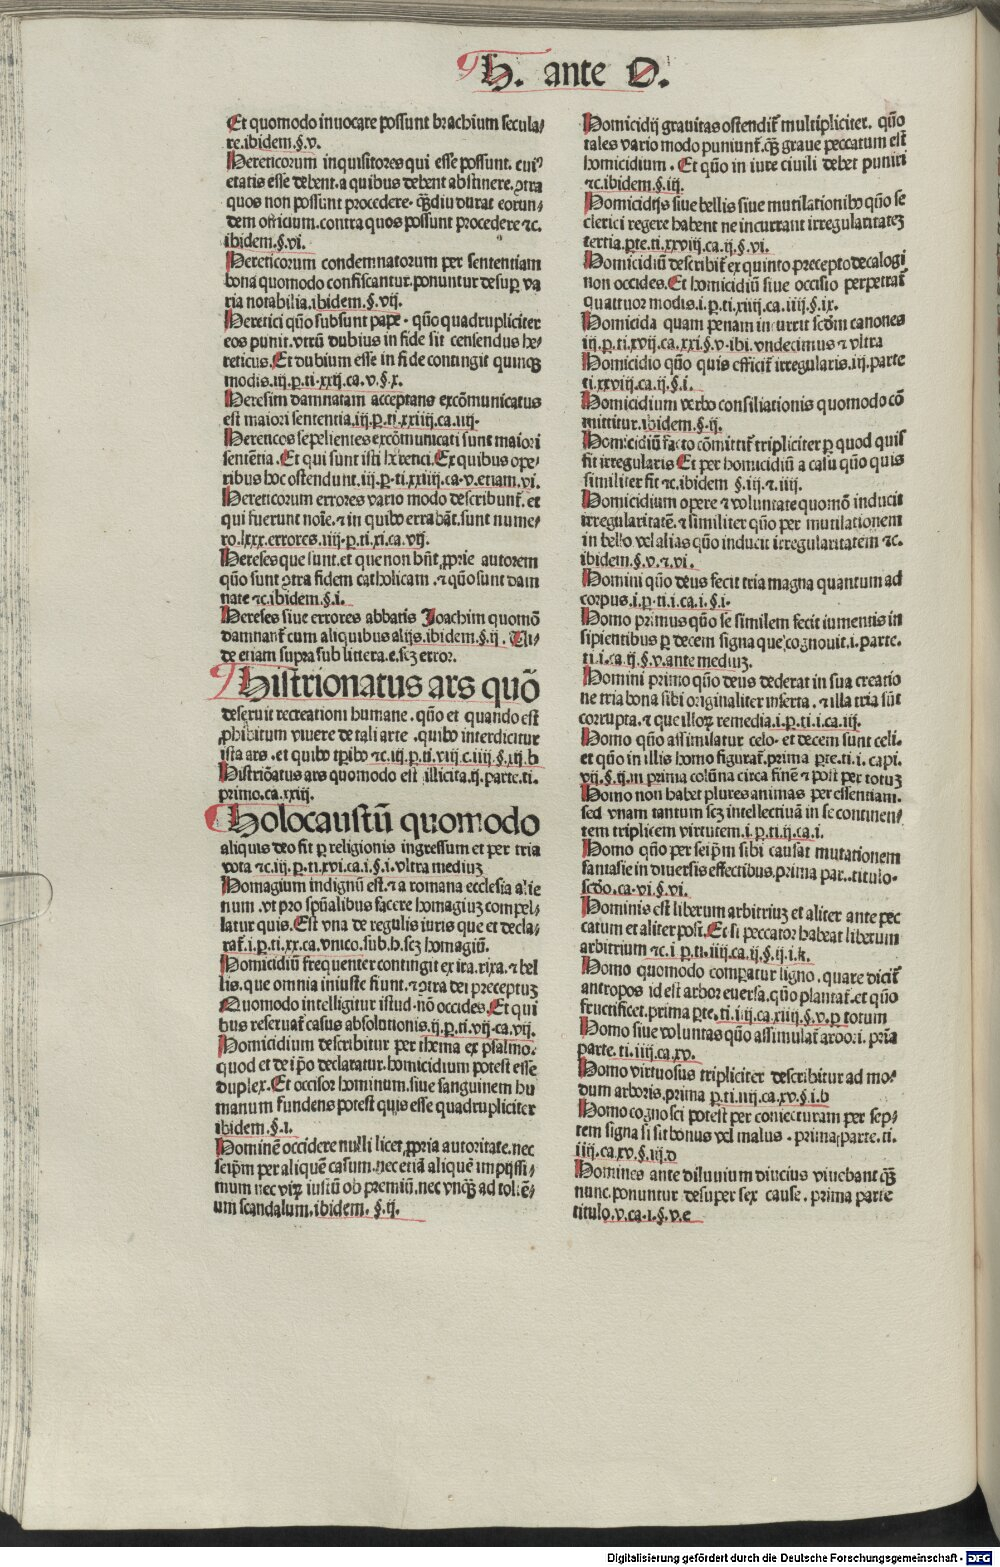 H. ante O.
Et quomodo inuocare possunt brachium secula⸗
re.ibidem.§.v.
Hereticorum inquisitores qui esse possunt. cuiꝰ
etatis esse debent.a quibus debent abstinere.ꝯtra
quos non possunt procedere. qͣꝫdiu durat eorun⸗
dem officium.contra quos possunt procedere ⁊c.
ibidem.§.vi.
Hereticorum condemnatorum per sententiam
bona quomodo confiscantur.ponuntur desuꝑ va
ria notabilia.ibidem.§.vij.
Heretici qūo subsunt pape. qūo quadrupliciter
eos punit.vtrū dubius in fide sit censendus he⸗
reticus.Et dubium esse in fide contingit quinqꝫ
modis.iij.p.ti.xxij.ca.v.§.x.
Heresim damnatam acceptans excōmunicatus
est maiori sententia.iij.p.ti.xxiiij.ca.iiij.
Hereticos sepelientes excōmunicati sunt maiori
sentētia.Et qui sunt isti heretici.Ex quibus ope⸗
ribus hoc ostendunt.iij.p.ti.xxiiij.ca.v.etiam.vi.
Hereticorum errores vario modo describunt̄.et
qui fuerunt noīe.⁊ in quibꝰ errabāt.sunt nume⸗
ro.lxxx.errores.iiij.p.ti.xi.ca.vij.
Hereses que sunt.et que non hn̄t ꝓprie autorem
qūo sunt ꝯtra fidem catholicam.⁊ qūo sunt dam
nate ⁊c.ibidem.§.i.
Hereses siue errores abbatis Joachim quomō
damnant̄ cum aliquibus alijs.ibidem.§.ij. Vi⸗
de etiam supra sub littera.e.scꝫ error.
Histrionatus ars quō
deseruit recreationi humane.qūo et quando est
ꝓhibitum viuere de tali arte.quibꝰ interdicitur
ista ars.et quibꝰ tꝑibꝰ ⁊c.iij.p.ti.viij.c.iiij.§.xij.b
Histriōatus ars quomodo est illicita.ij.parte.ti.
primo.ca.xxiij.
Holocaustū quomodo
aliquis deo fit ꝑ religionis ingressum et per tria
vota ⁊c.iij.p.ti.xvi.ca.i.§.i.vltra mediuꝫ
Homagium indignū est.⁊ a romana ecclesia alie
num.vt pro spūalibus facere homagiuꝫ compel⸗
latur quis.Est vna de regulis iuris que et decla⸗
rat̄.i.p.ti.xx.ca.vnico.sub.h.scꝫ homagiū.
Homicidiū frequenter contingit ex ira.rixa.⁊ bel
lis.que omnia iniuste fiunt.⁊ ꝯtra dei preceptuꝫ
Quomodo intelligitur istud.nō occides.Et qui
bus reseruat̄ casus absolutionis.ij.p.ti.vij.ca.vij.
Homicidium describitur per thema ex psalmo.
quod et de ip̄o declaratur.homicidium potest esse
duplex.Et occisor hominum.siue sanguinem hu
manum fundens potest quis esse quadrupliciter
ibidem.§.i.
Hominē occidere nulli licet ꝓpria autoritate.nec
seip̄m per aliquē casum.nec etiā aliquē impijssi⸗
mum nec viꝝ iustū ob premiū.nec vnqꝫ ad tollē⸗
um scandalum.ibidem. §.ij.
Homicidij grauitas ostendit̄ multipliciter. qūo
tales vario modo puniunt̄.qͣꝫ graue peccatum est
homicidium. Et qūo in iure ciuili debet puniri
⁊c.ibidem.§.iij.
Homicidijs siue bellis siue mutilationibꝰ qūo se
clerici regere habent ne incurrant irregularitateꝫ
tertia.ꝑte.ti.xxviij.ca.ij.§.vi.
Homicidiū describit̄ ex quinto precepto decalogi
non occides.Et homicidiū siue occisio perpetrat̄
quattuor modis.i.p.ti.xiiij.ca.iiij.§.ix.
Homicida quam penam incurrit scd̄m canones
iij.p.ti.xvij.ca.xxi.§.v.ibi.vndecimus ⁊ vltra
Homicidio qūo quis efficit̄ irregularis.iij.parte
ti.xxviij.ca.ij.§.i.
Homicidium verbo consiliationis quomodo cō
mittitur.ibidem.§.ij.
Homicidiū facto cōmittit̄ tripliciter ꝑ quod quis
fit irregularis Et per homicidiū a casu qūo quis
similiter fit ⁊c.ibidem §.iij.⁊.iiij.
Homicidium opere ⁊ voluntate quomō inducit
irregularitatē.⁊ similiter qūo per mutilationem
in bello vel alias qūo inducit irregularitatem ⁊c.
ibidem.§.v.⁊.vi.
Homini qūo deus fecit tria magna quantum ad
corpus.i.p.ti.i.ca.i.§.i.
Homo primus qūo se similem fecit iumentis in
sipientibus ꝑ decem signa que cognouit.i.parte.
ti.i.ca.ij.§.v.ante mediuꝫ.
Homini primo qūo deus dederat in sua creatio
ne tria bona sibi originaliter inserta.⁊ illa tria sūt
corrupta.⁊ que illoꝝ remedia.i.p.ti.i.ca.iij.
Homo qūo assimilatur celo.et decem sunt celi.
et qūo in illis homo figurat̄.prima ꝑte.ti.i.capi.
vij.§.ij.in prima colūna circa finē ⁊ post per totuꝫ
Homo non habet plures animas per essentiam.
sed vnam tantum scꝫ intellectiuā in se continen⸗
tem triplicem virtutem.i.p.ti.ij.ca.i.
Homo qūo per seip̄m sibi causat mutationem
fantasie in diuersis effectibus.prima par..titulo.
scd̄o.ca.vi.§.vi.
Hominis est liberum arbitriuꝫ et aliter ante pec
catum et aliter post.Et si peccator habeat liberum
arbitrium ⁊c.i p.ti.iiij.ca.ij.§.ij.i.k.
Homo quomodo comꝑatur ligno.quare dicit̄
antropos id est arbor euersa.qūo plantat̄.et qūo
fructificet.prima ꝑte.ti.iiij.ca.xiiij.§.v.ꝑ totum
Homo siue voluntas qūo assimulat̄ arbori. prīa
parte.ti.iiij.ca.xv.
Homo virtuosus tripliciter describitur ad mo⸗
dum arboris.prima p.ti.iiij.ca.xv.§.i.b
Homo cognosci potest per coniecturam per sep⸗
tem signa si sit bonus vel malus. prima parte.ti.
iiij.ca.xv.§.iij.d
Homines ante diluuium diucius viuebant qͣꝫ
nunc.ponuntur desuper sex cause. prima parte
titulo.v.ca.i.§.v.e
Digitalisierung gefördert durch die Deutsche Forschungsgemeinschaft - DFG